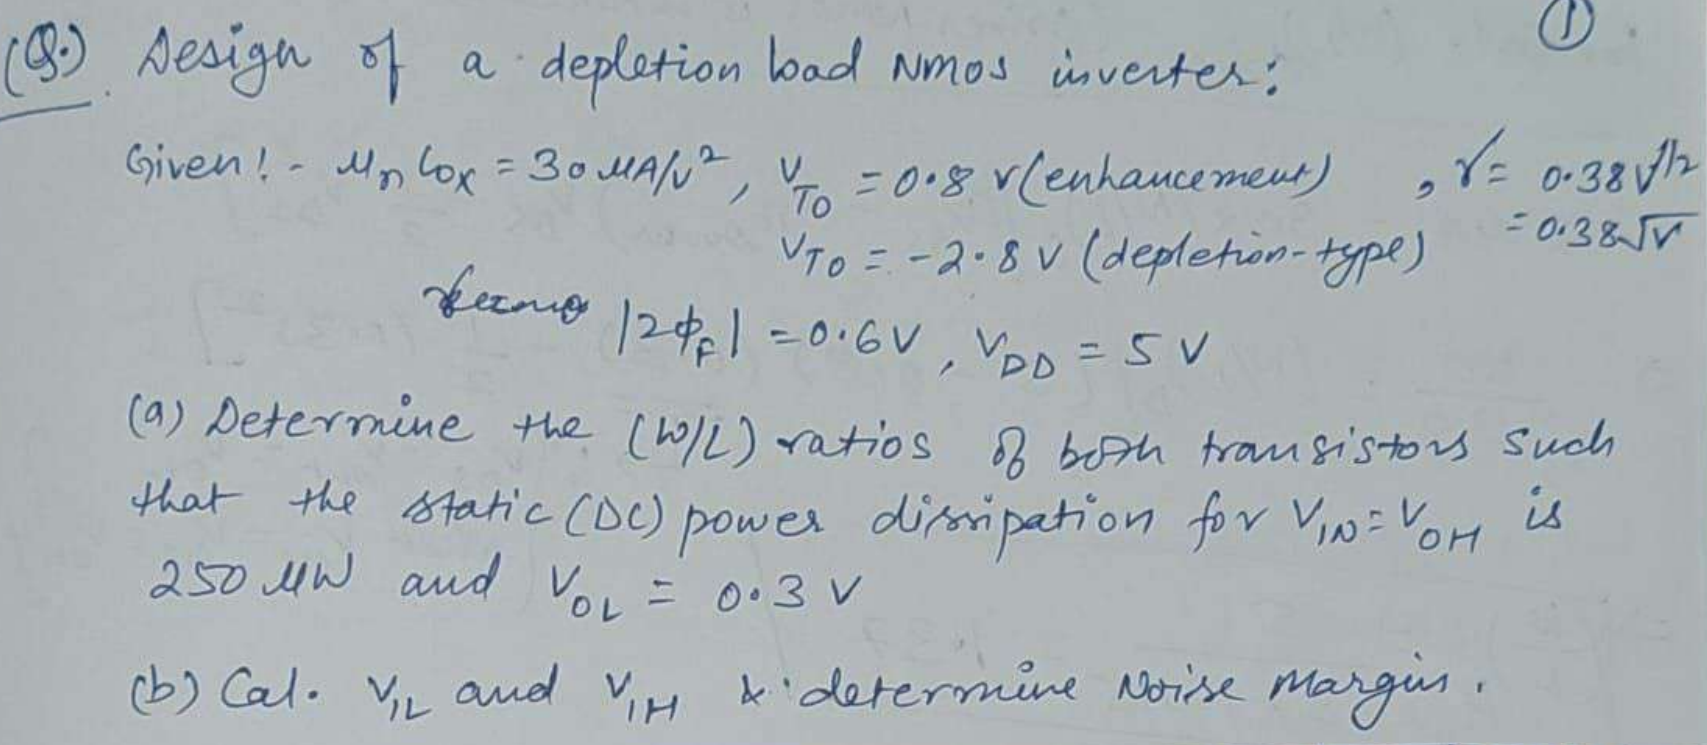 (Q.) Design of a depletion load NMOS inverter: ①
Given! - μn Cox = 30 μA/V², VTO = 0.8 V (enhancement), γ = 0.38 V^1/2
= 0.38√V
VTO = -2.8 V (depletion-type)
|2ϕF| = 0.6V, VDD = 5 V
(a) Determine the (W/L) ratios of both transistors such
that the static (DC) power dissipation for VIN = VOH is
250 μW and VOL = 0.3 V
(b) Cal. VIL and VIH & determine Noise Margin.